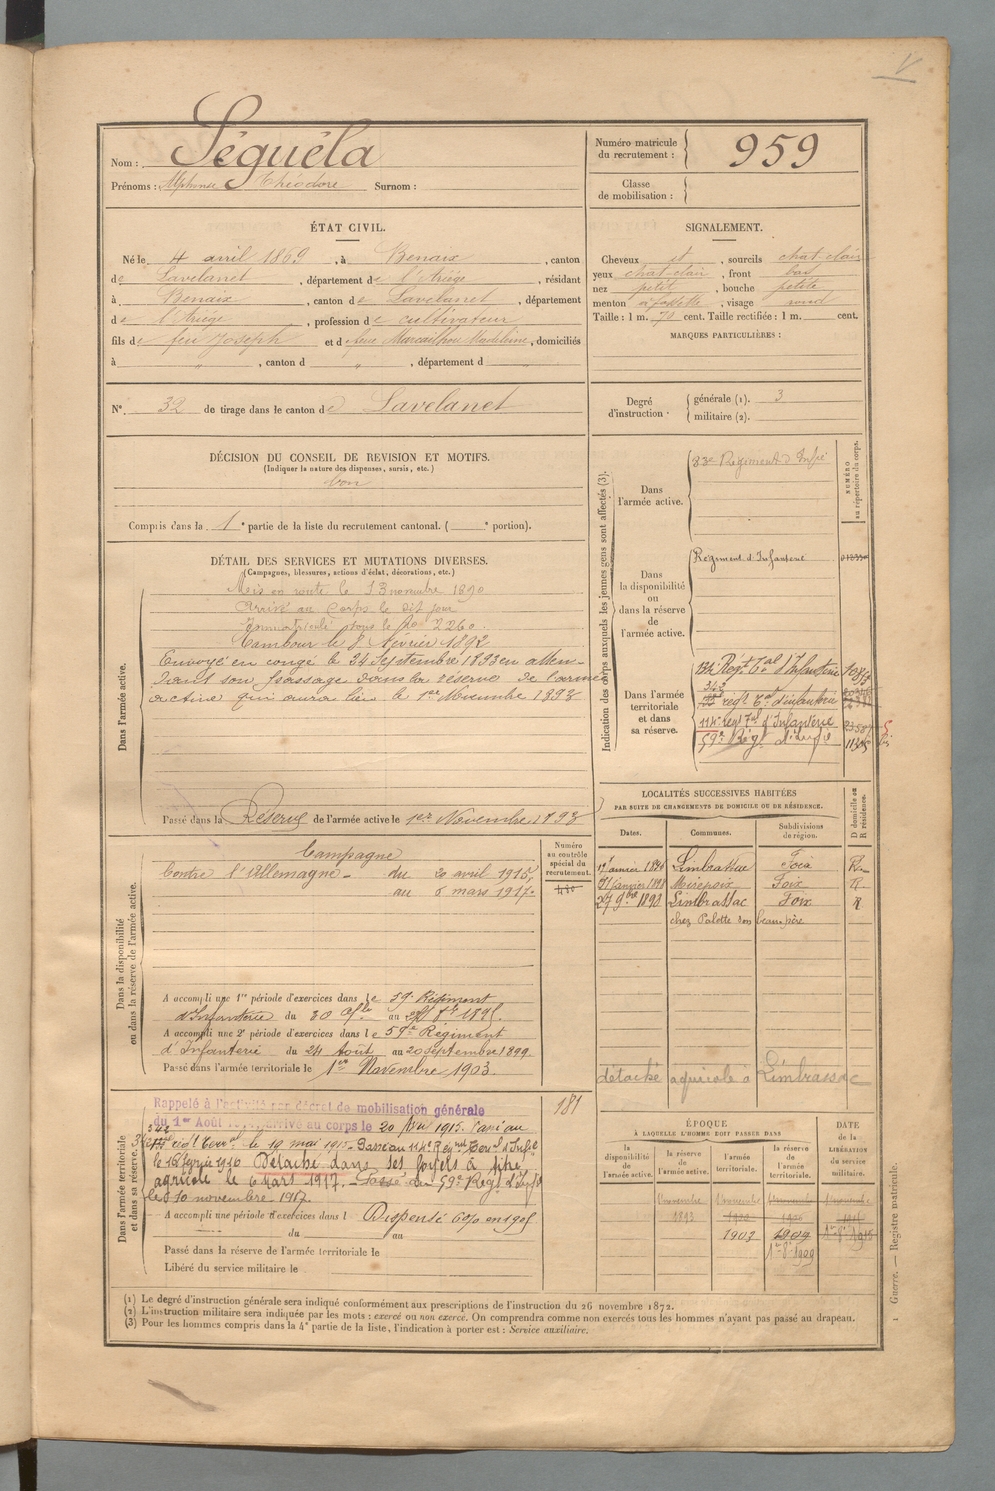 Nom : Séguéla
Prénoms : Alphonse Théodore Surnom :
Numéro matricule du recrutement : 959
Classe de mobilisation :
ÉTAT CIVIL.
Né le 4 avril 1869, à Benaix, canton
de Lavelanet, département de l'Ariège, résidant
à Benaix, canton de Lavelanet, département
de l'Ariège, profession de cultivateur
fils de feu Joseph et de feue Marcailhou Madeleine, domiciliés
à " , canton d " , département d "
N° 32 de tirage dans le canton de Lavelanet
SIGNALEMENT.
Cheveux et , sourcils chat clair
yeux chat clair , front bas
nez petit , bouche petite
menton à fossette , visage rond
Taille : 1 m. 70 cent. Taille rectifiée : 1 m. cent.
MARQUES PARTICULIÈRES :
Degré d'instruction : générale (1). 3
militaire (2).
DÉCISION DU CONSEIL DE REVISION ET MOTIFS.
(Indiquer la nature des dispenses, sursis, etc.)
bon
Compris dans la 1e partie de la liste du recrutement cantonal. ( e portion).
DÉTAIL DES SERVICES ET MUTATIONS DIVERSES.
(Campagnes, blessures, actions d'éclat, décorations, etc.)
Dans l'armée active.
Mis en route le 13 novembre 1890
Arrivé au Corps le dit jour
Immatriculé sous le No 2260.
Tambour le 8 Février 1892
Envoyé en congé le 24 Septembre 1893 en atten-
dant son passage dans la réserve de l'armée
active qui aura lieu le 1er Novembre 1893
Passé dans la Réserve de l'armée active le 1er Novembre 1893
Dans la disponibilité ou dans la réserve de l'armée active.
Numéro au contrôle spécial du recrutement.
Campagne
Contre l'Allemagne - du 20 avril 1915,
au 6 mars 1917.
A accompli une 1re période d'exercices dans le 59e Régiment
d'Infanterie du 30 au
A accompli une 2e période d'exercices dans le 59e Régiment
d'Infanterie du 24 Août au 20 septembre 1899.
Passé dans l'armée territoriale le 1er Novembre 1903.
Dans l'armée territoriale et dans sa réserve.
181
Rappelé à l'activité par décret de mobilisation générale
du 1er Août arrivé au corps le 20 Avril 1915. Passé au
342
régt Terral le 19 mai 1915. Passé au 114e Régnt Terral d'Infie
le 1916 Détaché dans ses foyers à titre
agricole le 6 Mars 1917. - Passé au 59e Régt d'Infie
le 10 novembre 1917.
A accompli une période d'exercices dans l Dispensé 60% en 1905
du au
Passé dans la réserve de l'armée territoriale le
Libéré du service militaire le
Indication des corps auxquels les jeunes gens sont affectés (3).
NUMÉRO au répertoire du corps.
Dans l'armée active. 83e Régiment d'Infie
Dans la disponibilité ou dans la réserve de l'armée active. Régiment d'Infanterie
Dans l'armée territoriale et dans sa réserve.
134e Regt Tal d'Infanterie
régt Tal d'infanterie
114e régt Tal d'Infanterie
59e Régt d'Infie
LOCALITÉS SUCCESSIVES HABITÉES
PAR SUITE DE CHANGEMENTS DE DOMICILE OU DE RÉSIDENCE.
Dates. Communes. Subdivisions de région. D domicile ou R résidence.
1er janvier 1894 Limbrassac Foix R.
31 janvier 1898 Mirepoix Foix R
27 9bre 1898 Limbrassac Foix R
chez Palotte son beau père
détaché agricole à Limbrassac
ÉPOQUE
À LAQUELLE L'HOMME DOIT PASSER DANS
DATE de la LIBÉRATION du service militaire.
la disponibilité de l'armée active. la réserve de l'armée active. l'armée territoriale. la réserve de l'armée territoriale.
1 novembre 1 novembre 1 novembre 1 novembre
1893
1903 1909
1909
(1) Le degré d'instruction générale sera indiqué conformément aux prescriptions de l'instruction du 26 novembre 1872.
(2) L'instruction militaire sera indiquée par les mots : exercé ou non exercé. On comprendra comme non exercés tous les hommes n'ayant pas passé au drapeau.
(3) Pour les hommes compris dans la 4e partie de la liste, l'indication à porter est : Service auxiliaire.
Guerre. — Registre matricule. 1